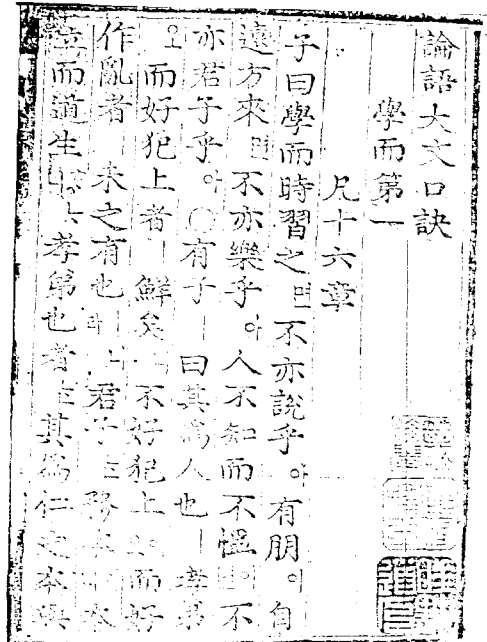 論語大文口訣
學而第一
凡十六章
子曰學而時習之면不亦說乎아有朋이自
遠方來면不亦樂乎아人不知而不慍이면不
亦君子乎아○有子ㅣ曰其爲人也ㅣ孝弟
오而好犯上者ㅣ鮮矣니不好犯上이오而好
作亂者ㅣ未之有也君子는務本이니本
立而道生孝弟也者는其爲仁之本與